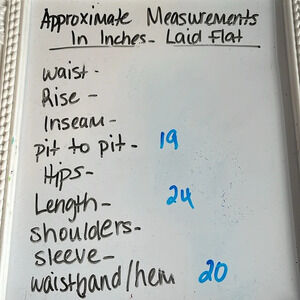 Approximate Measurements
In Inches - Laid Flat
waist -
Rise -
Inseam -
pit to pit - 19
Hips -
Length - 24
shoulders -
sleeve -
waistband/hem 20